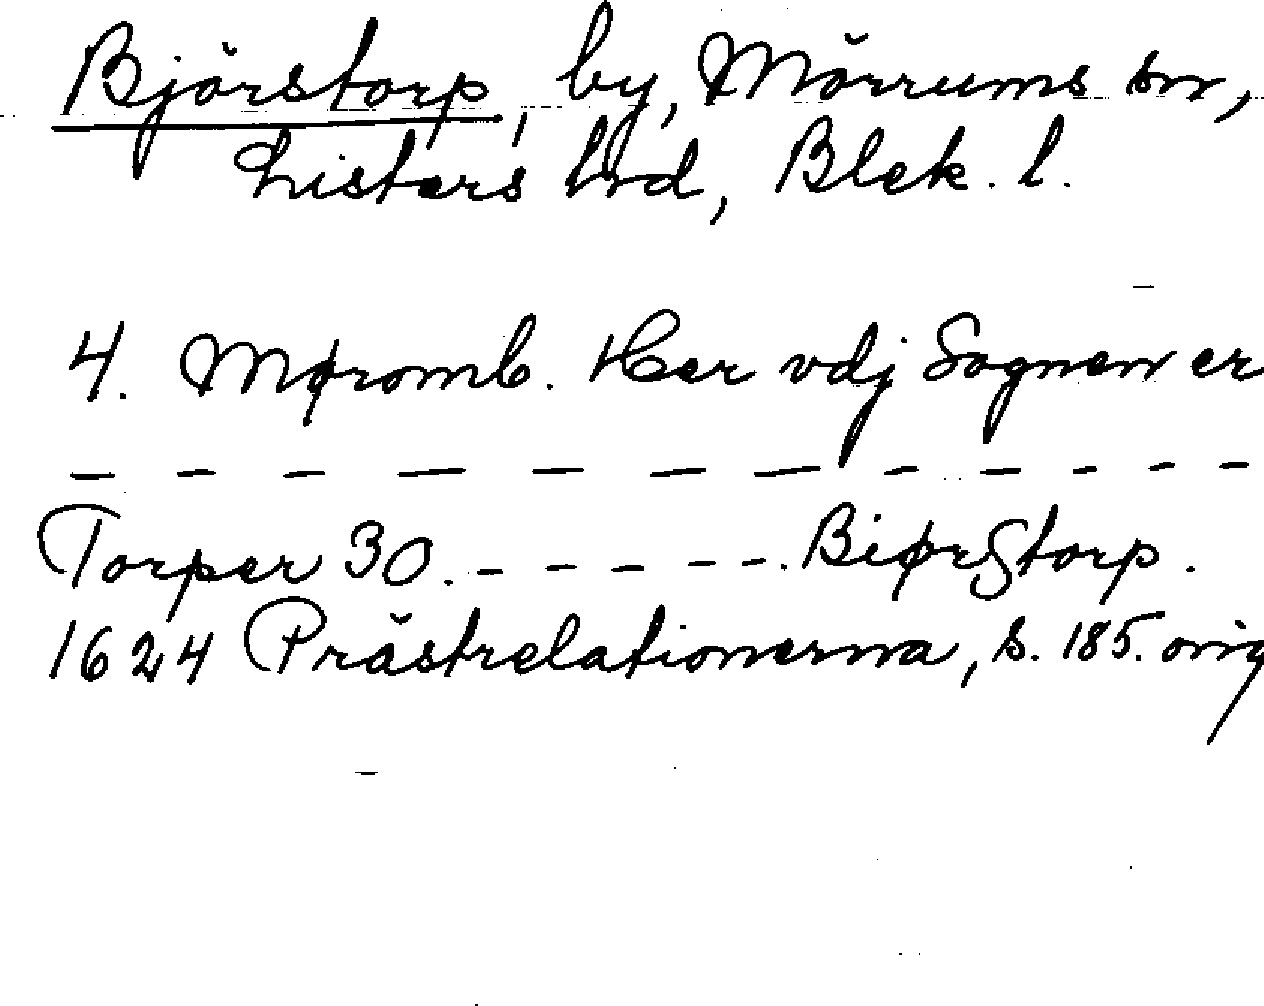 Björstorp, by, Mörrums sn,
Listers hrd, Blek. l.
4. Møromb. Her vdj Sognen er
— — — — — — — — — — — —
Torper 30. - - - - - . BiørStorp.
1624 Prästrelationerna, s. 185. orig